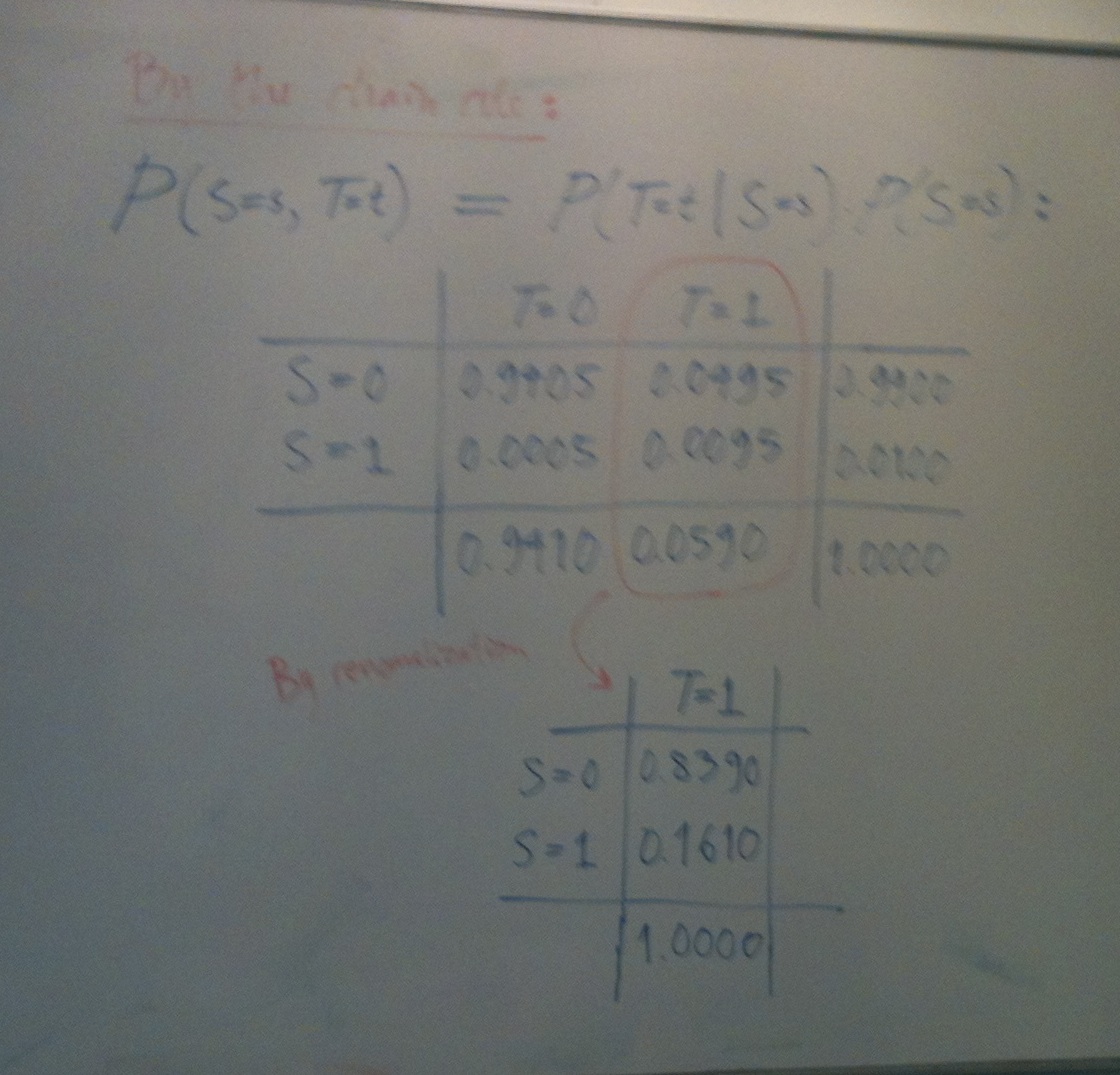 By the chain rule:
P(S=s, T=t) = P(T=t | S=s) P(S=s):
T=0 T=1
S=0 0.9405 0.0495 0.9900
S=1 0.0005 0.0095 0.0100
0.9410 0.0590 1.0000
By renormalization
T=1
S=0 0.8390
S=1 0.1610
1.0000